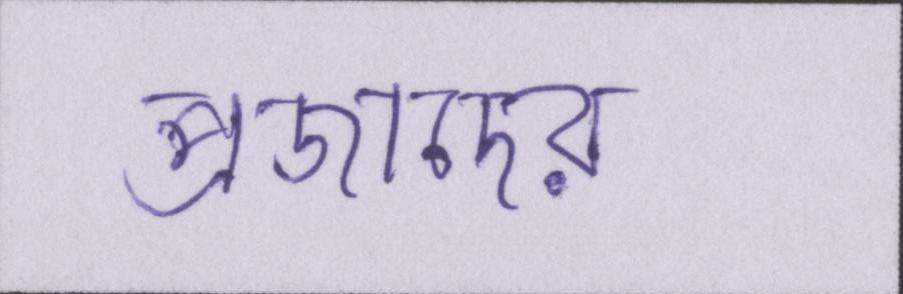 প্রজাদের